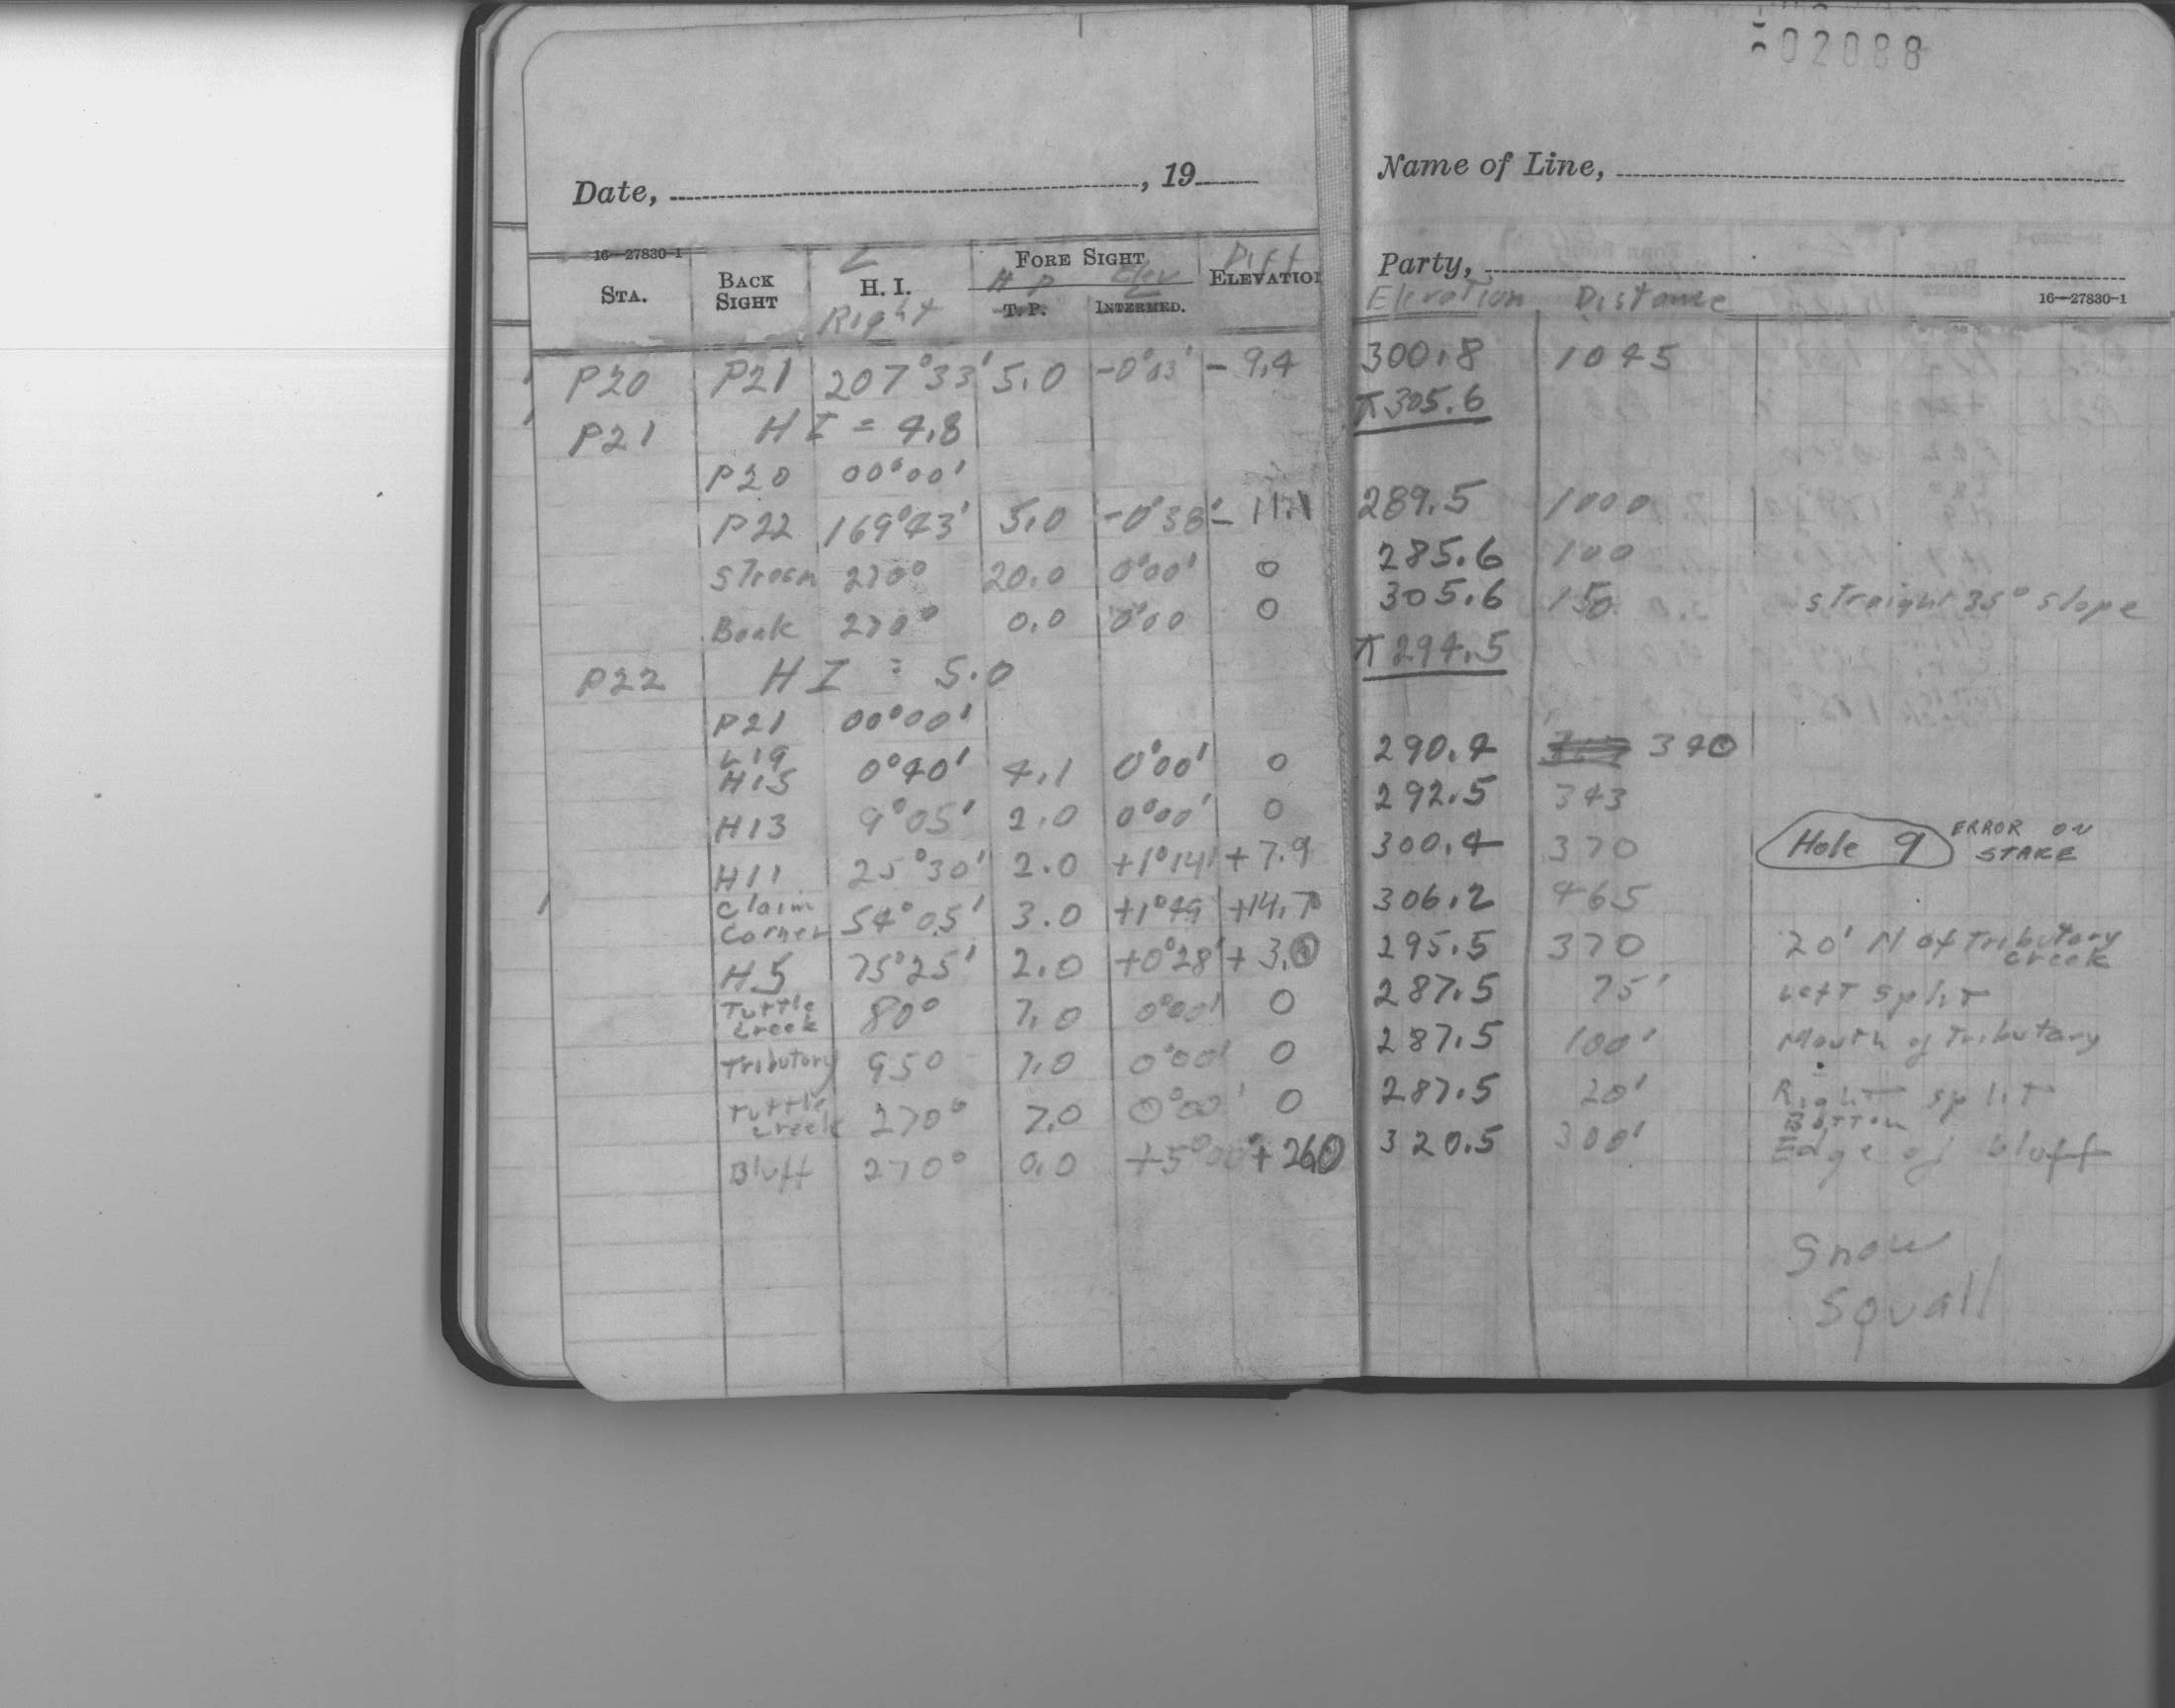 02088
Date, , 19
Name of Line,
Party,
16—27830-1
STA.
BACK SIGHT
∠ H. I. Right
FORE SIGHT
H P T. P.
Elev ∠ INTERMED.
Diff ELEVATION
Elevation Distance 16—27830-1
P20 P21 207°33' 5.0 - 9.4 300.8 1045
⊼ 305.6
P21 H I = 4.8
P20 00°00'
P22 169°43' 5.0 -0°38' - 11.1 289.5 1000
Stream 270° 20.0 0°00' 0 285.6 100
Bank 270° 0.0 0°00 0 305.6 150 straight 35° slope
⊼ 294.5
P22 H I = 5.0
P21 00°00'
L19
H15 0°40' 4.1 0°00' 0 290.4 340
H13 9°05' 2.0 0°00' 0 292.5 343
H11 25°30' 2.0 +1°14' +7.9 300.4 370 Hole 9 ERROR ON STAKE
Claim Corner 54°05' 3.0 +1°49' +14.7 306.2 465
H5 75°25' 2.0 +0°28' +3.0 295.5 370 20' N of Tributary Creek
Tuttle Creek 80° 7.0 0°00' 0 287.5 75' Left split
Tributary 95° 7.0 0°00' 0 287.5 100' Mouth of Tributary
Tuttle Creek 270° 7.0 0°00' 0 287.5 20' Right split
Bluff 270° 0.0 +5°00' +26.0 320.5 300' Bottom Edge of bluff
Snow
Squall